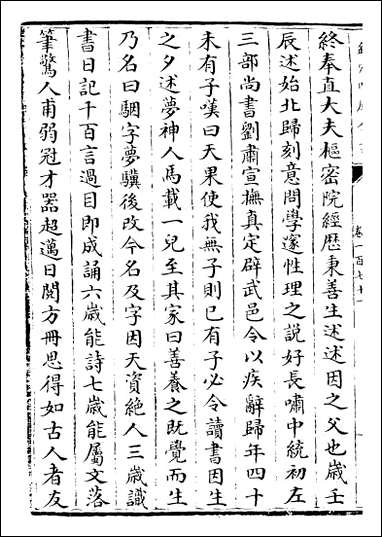 終奉直大夫樞密院經歴秉善生述述因之父也嵗壬
辰述始北歸刻意問學邃性理之說好長嘯中統初左
三部尚書劉肅宣撫真定辟武邑令以疾辭歸年四十
未有子嘆曰天果使我無子則已有子必令讀書因生
之夕述夢神人馬載一兒至其家曰善養之既覺而生
乃名曰駰字夢驥後改今名及字因天資絶人三嵗識
書日記千百言過目即成誦六嵗能詩七嵗能屬文落
筆驚人甫弱冠才器超邁日閲方冊思得如古人者友
卷一百七十一